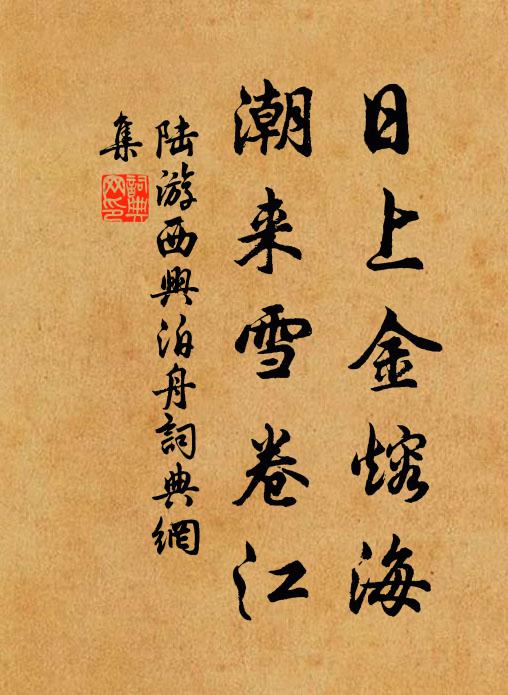 日上金熔海
潮来雪卷江
陆游西興泊舟詞典網
集
詞典网印